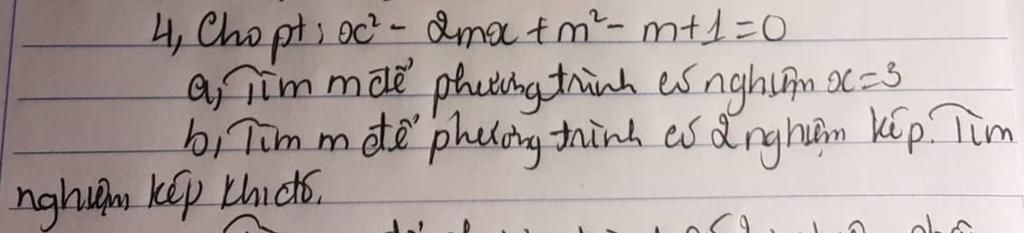 4, Cho pt: x² - 2mx + m² - m + 1 = 0
a, Tìm m để phương trình có nghiệm x = 3
b, Tìm m để phương trình có 2 nghiệm kép. Tìm
nghiệm kép khi đó.